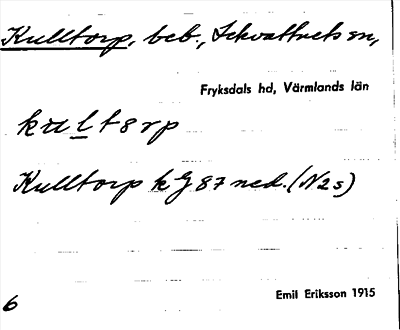 Kulltorp, beb., Lekvattnets sn,
Fryksdals hd, Värmlands län
kultorp
Kulltorp kG 87 ned. (N2s)
Emil Eriksson 1915
6